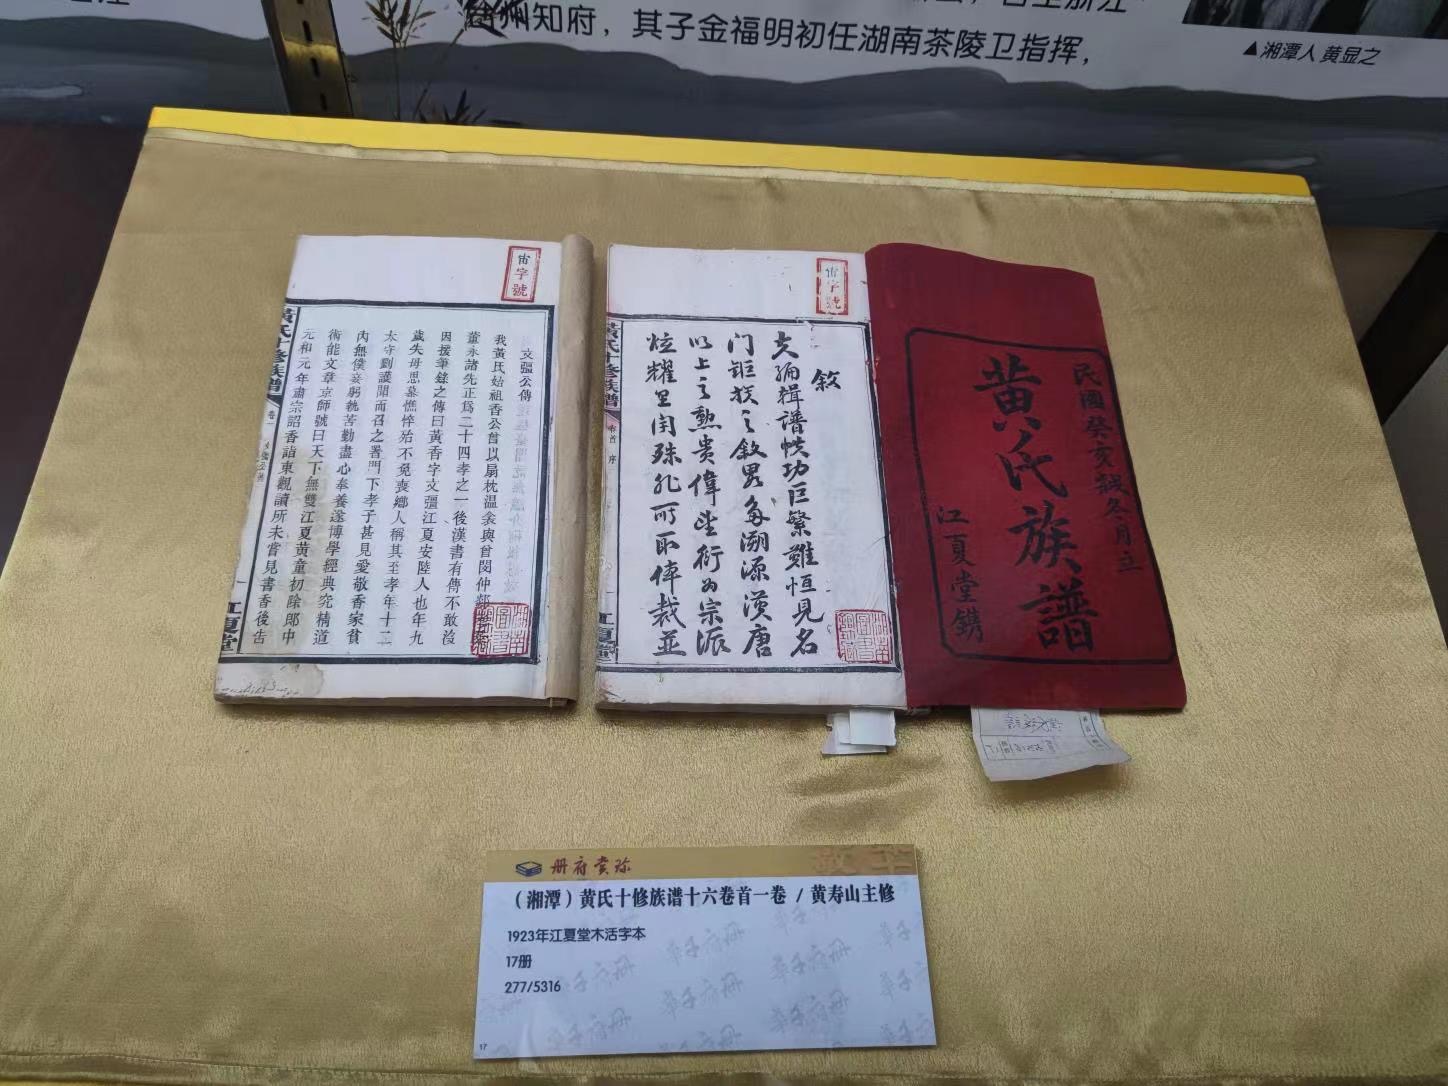 知府，其子金福明初任湖南茶陵卫指挥，
▲湘潭人 黄显之
宙字號
文彊公傳
我黃氏始祖香公曾以扇枕温衾與曾閔仲
董永諸先正爲二十四孝之一後漢書有傳不敢沒
因援筆錄之傳曰黃香字文彊江夏安陸人也年九
歲失母思慕憔悴殆不免喪鄉人稱其至孝年十二
太守劉護聞而召之署門下孝子甚見愛敬香家貧
內無僕妾躬執苦勤盡心奉養遂博學經典究精道
術能文章京師號曰天下無雙江夏黃童初除郎中
元和元年肅宗詔香詣東觀讀所未嘗見書香後告
黃氏十修族譜
卷一
江夏堂
宙字號
敘
夫編輯譜帙功巨繁難恒見名
门鉅族之敘男多溯源漢唐
以上之勲贵偉望衍为宗派
炫耀里闬殊非所取俾裁並
湖南圖書館藏
黃氏十修族譜
卷首 序
江夏堂
民國癸亥歲冬月立
黄氏族譜
江夏堂鐫
册府赏珍
（湘潭）黄氏十修族谱十六卷首一卷 / 黄寿山主修
1923年江夏堂木活字本
17册
277/5316
17